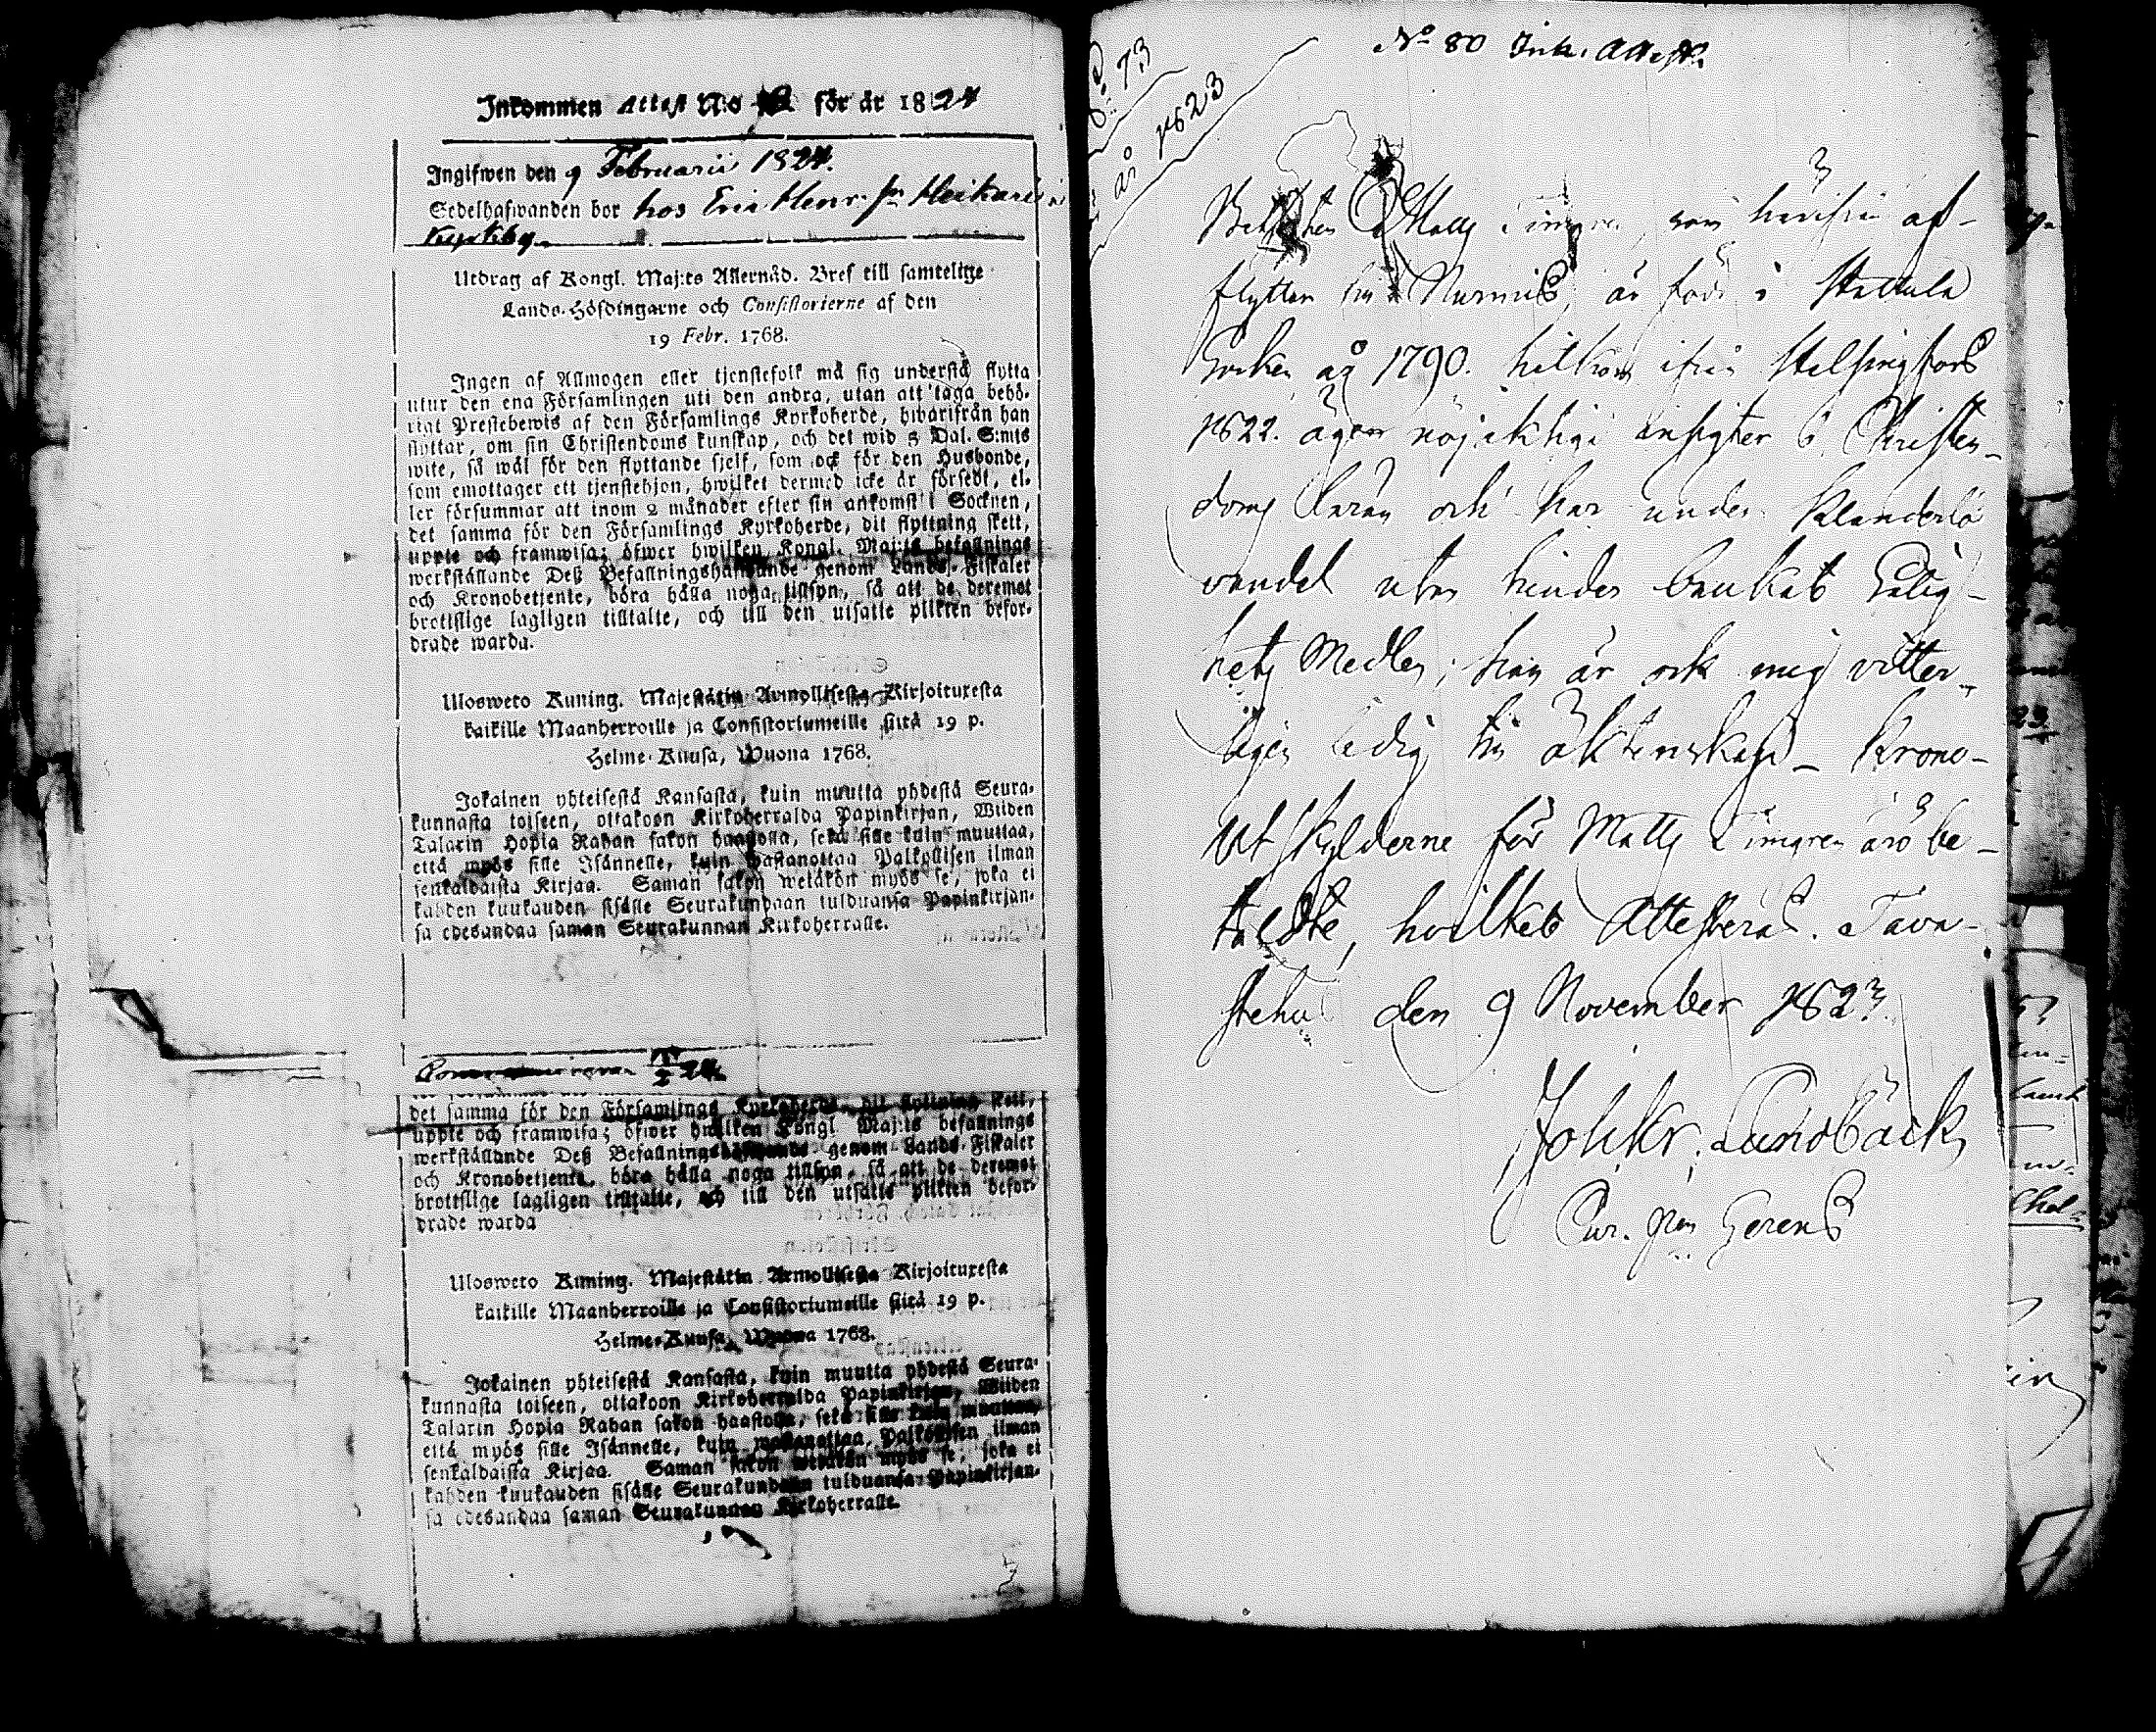 Inkommen Attest No för år 1824
Ingifwen den 9 Februarii 1824.
Sedelhafwanden bor hos Eric Henr. Sn Heikari i
Kyrkby
Utdrag af Kongl. Maj:ts Allernåd. Bref till samtelige
Lands-Höfdingarne och Consistorierne af den
19 Febr. 1768.
Ingen af Allmogen eller tjenstefolk må sig understå flytta
utur den ena Församlingen uti den andra, utan att taga behö-
rigt Prestebewis af den Församlings Kyrkoherde, hwarifrån han
flyttar, om sin Christendoms kunskap, och det wid 5 Dal. S:mts
wite, så wäl för den flyttande sjelf, som ock för den Husbonde,
som emottager ett tjenstehjon, hwilket dermed icke är försedt, el-
ler försummar att inom 2 månader efter sin ankomst i Socknen,
det samma för den Församlings Kyrkoherde, dit flyttning skett,
uppte och framwisa; öfwer hwilken Kongl. Maj:ts befallnings
werkställande Deß Befallningshafwande genom Lands-Fiskaler
och Kronobetjente, böra hålla noga tillsyn, så att de deremot
brottslige lagligen tilltalte, och till den utsatte plikten befor-
drade warda.
Ulosweto Kuning. Majestätin Armollisesta Kirjoituxesta
kaikille Maanherroille ja Consistoriumeille siitä 19 p.
Helme-Kuusa, Wuona 1768.
Jokainen yhteisestä Kansasta, kuin muutta yhdestä Seura-
kunnasta toiseen, ottakoon Kirkoherralda Papinkirjan, Wiiden
Talarin Hopia Rahan sakon haastolla, sekä sille kuin muuttaa,
että myös sille Isännelle, kuin wastanottaa Palkollisen ilman
senkaldaista Kirjaa. Saman sakon wetäkön myös se, joka ei
kahden kuukauden sisälle Seurakundaan tulduansa Papinkirjan-
sa edesandaa saman Seurakunnan Kirkoherralle.
det samma för den Församlings Kyrkoherde, dit flyttning skett,
uppte och framwisa; öfwer hwilken Kongl. Maj:ts befallnings
werkställande Deß Befallningshafwande genom Lands-Fiskaler
och Kronobetjente, böra hålla noga tillsyn, så att de deremot
brottslige lagligen tilltalte, och till den utsatte plikten befor-
drade warda
Ulosweto Kuning. Majestätin Armollisesta Kirjoituxesta
kaikille Maanherroille ja Consistoriumeille siitä 19 p.
Helme-Kuusa, Wuona 1768.
Jokainen yhteisestä Kansasta, kuin muutta yhdestä Seura-
kunnasta toiseen, ottakoon Kirkoherralda Papinkirjan, Wiiden
Talarin Hopia Rahan sakon haastolla, sekä sille kuin muuttaa,
että myös sille Isännelle, kuin wastanottaa Palkollisen ilman
senkaldaista Kirjaa. Saman sakon wetäkön myös se, joka ei
kahden kuukauden sisälle Seurakundaan tulduansa Papinkirjan-
sa edesandaa saman Seurakunnan Kirkoherralle.
No 80 Ink. Attest.
73
år 1823
Matts som härifrån af-
flyttar till Nurmis, är född i Hattula
Socken år 1790. hitkom ifrån Helsingfors
1822. äger nöjaktiga insigter i Christen-
doms läran och har under klanderlö
vandel utan hinder brukat Salig-
hets Medlen; han är ock mig vitter-
ligen ledig till äktenskap – Krono-
Utskylderne för Matts Limgren äro be-
taldte, hvilket Attesteras. Tava-
stehus den 9 November 1823.
Joh. Kr. Lundbäck,
Cur. Gerens